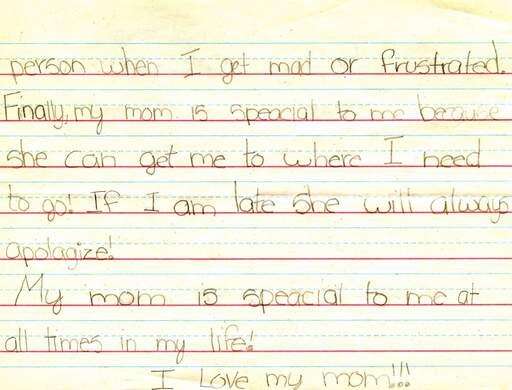 person when I get mad or frustrated.
Finally, my mom is speacial to me because
she can get me to where I need
to go! If I am late she will always
apolagize!
My mom is speacial to me at
all times in my life!
I Love my mom!!!